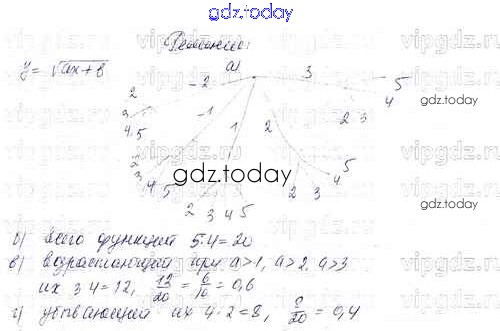 gdz.today
Решение:
y = √ax+b
a)
-2 -1 1 2 3
2 3 4 5
2 3 4 5
2 3 4 5
2 3 4 5
2 3 4 5
gdz.today
gdz.today
б) всего функций 5·4=20
в) возрастающей при a>1, a>2, a>3
их 3·4=12, 12/20 = 6/10 = 0,6
г) убывающей их 4·2=8, 8/20 = 0,4
gdz.today